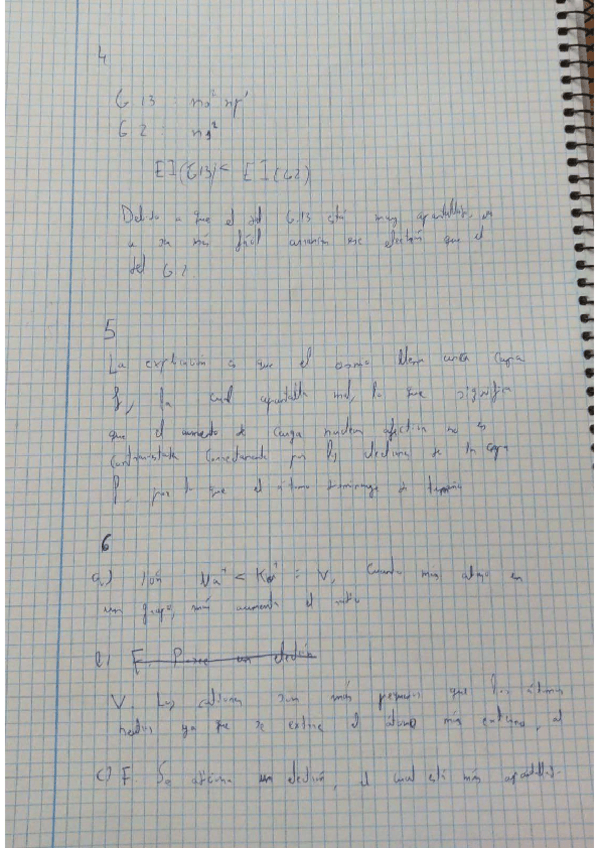 4
G 13 : ns² np¹
G 2 : ns²
EI(G13) < EI(G2)
Debido a que el del G.13 está muy apantallado, es
más fácil arrancar ese electrón que el
del G.2
5
La explicación es que el osmio tiene una capa
f, la cual apantalla mal, lo que significa
que el aumento de carga nuclear efectiva no es
contrarrestada correctamente por los electrones de la capa
f, por lo que el átomo disminuye de tamaño
6
a) Ión Na⁺ < K⁺ = V, cuando más abajo en
un grupo, más aumenta el radio
b) F. Posee un electrón
V. Los cationes son más pequeños que los átomos
neutros ya que se extrae el más externo, el
c) F. Se adiciona un electrón, el cual está más apantallado.